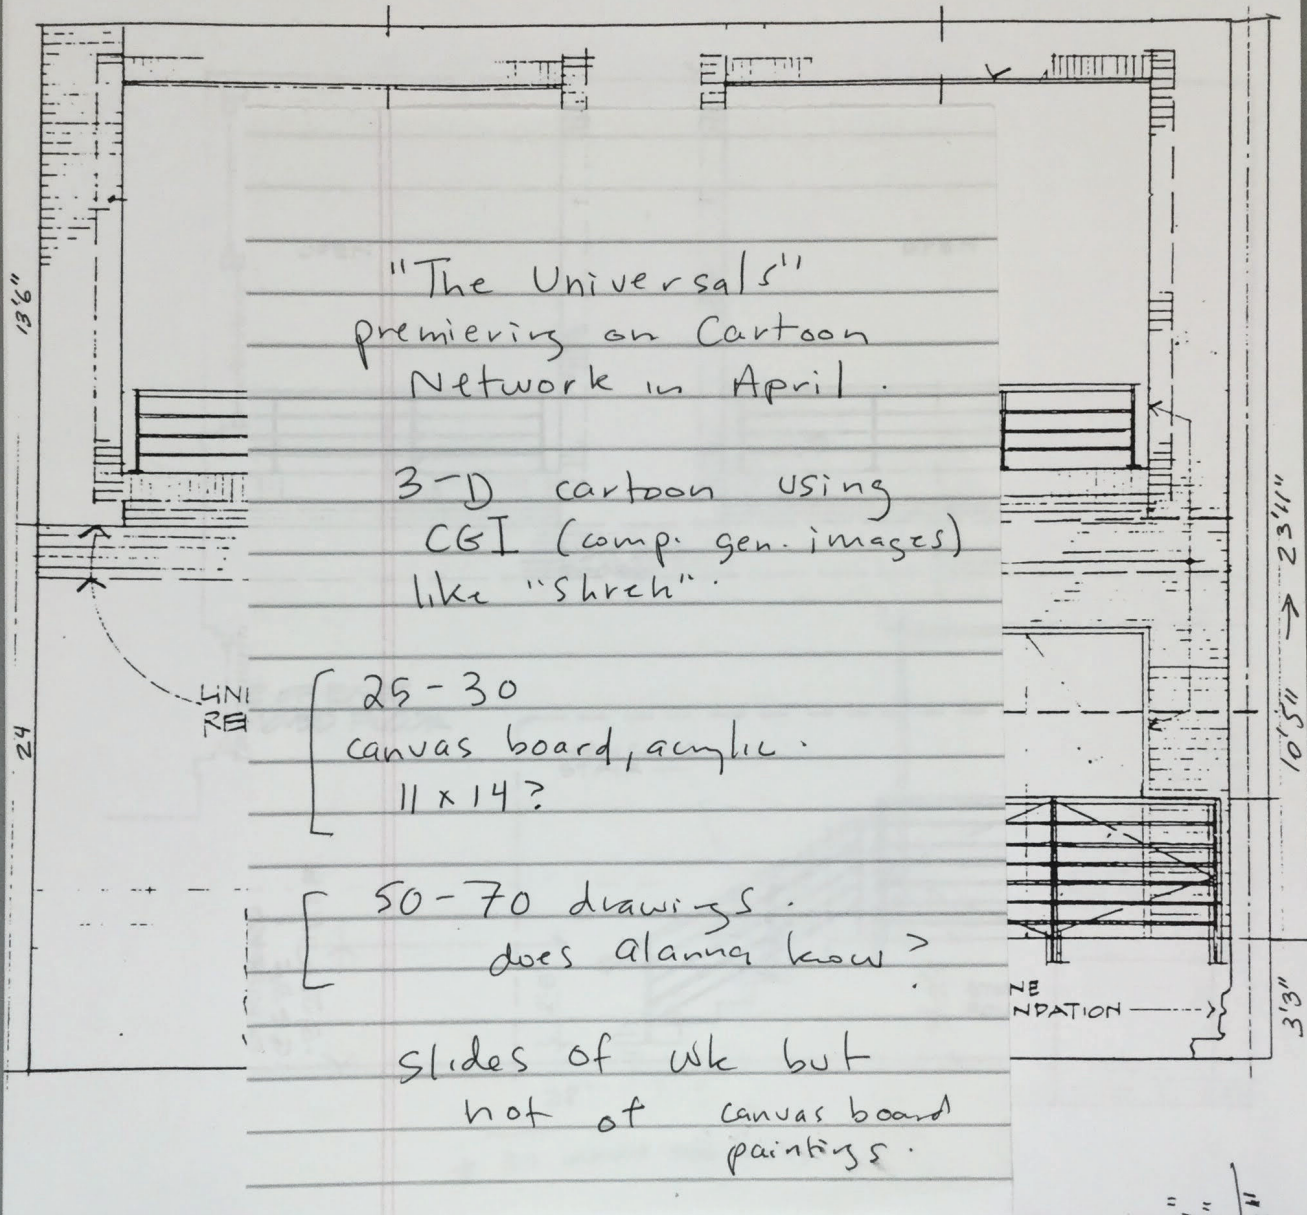 "The Universals"
premiering on Cartoon
Network in April.
3-D cartoon using
CGI (comp. gen. images)
like "Shrek".
25-30
canvas board, acrylic.
11 x 14?
50-70 drawings.
does alanna know?
slides of wk but
not of canvas board
paintings.
13'6"
24
LINE
RE
23'11"
10'5"
NE
NDATION
3'3"